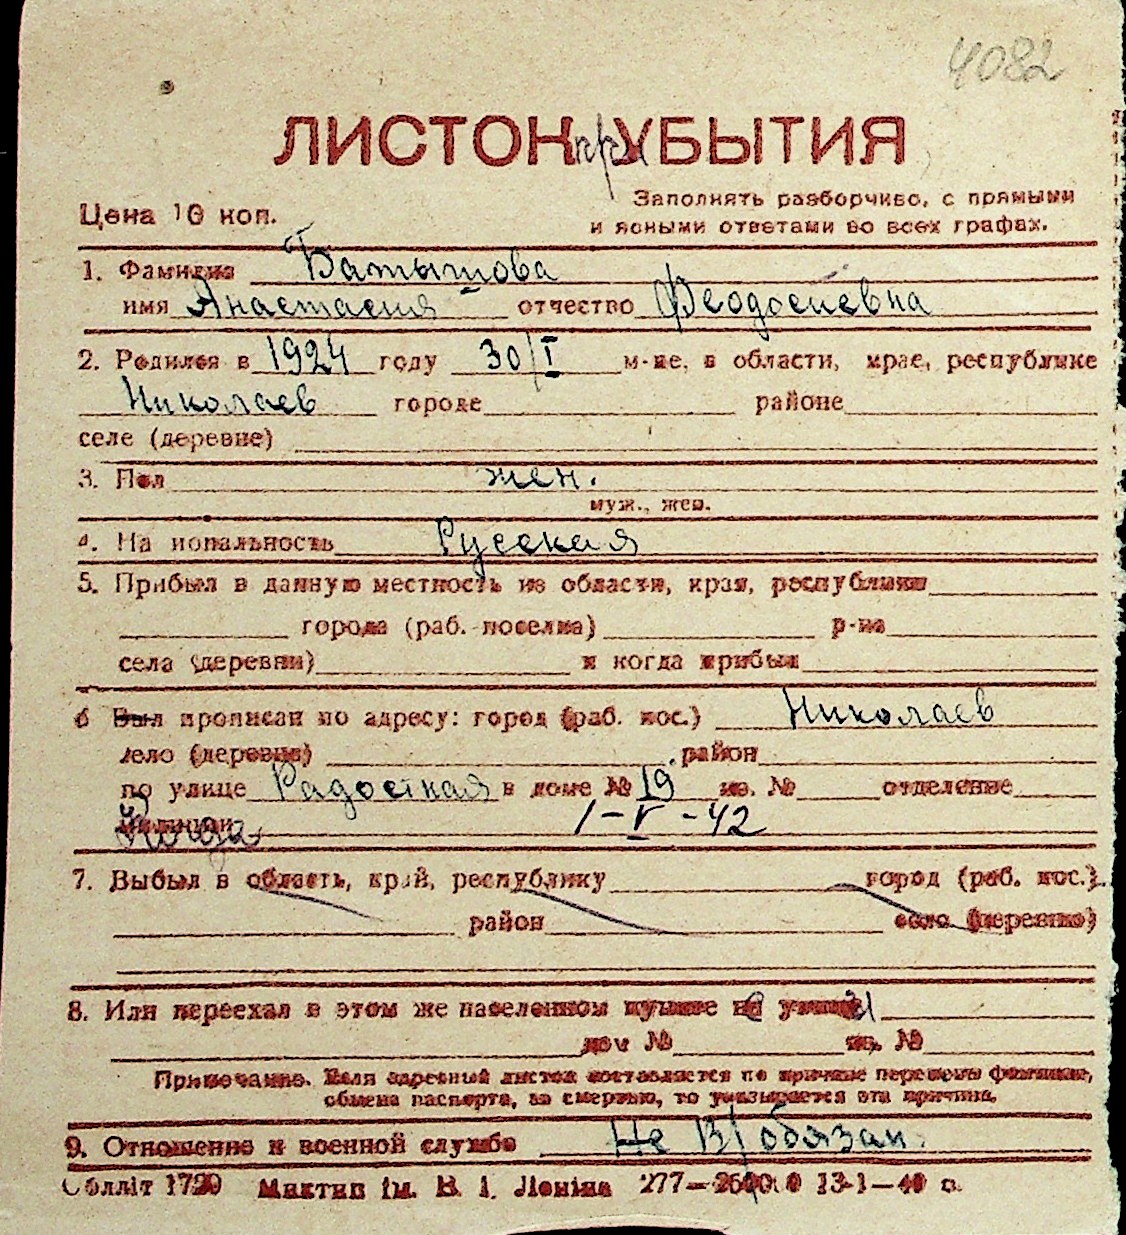 4082
ЛИСТОК прибытия УБЫТИЯ
Цена 10 коп.
Заполнять разборчиво, с прямыми
и ясными ответами во всех графах.
1. Фамилия Батышова
имя Анастасия отчество Феодосиевна
2. Родился в 1924 году 30/I м-це, в области, крае, республике
Николаев городе районе
селе (деревне)
3. Пол жен.
муж., жен.
4. Национальность Русская
5. Прибыл в данную местность из области, края, республики
города (раб. поселка) р-на
села (деревни) и когда прибыл
6 Был прописан по адресу: город (раб. пос.) Николаев
село (деревня) район
по улице Радостная в доме № 19 кв. № отделение
милиции 1-V-42
7. Выбыл в область, край, республику город (раб. пос.)
район село (деревню)
8. Или переехал в этом же населенном пункте на улицу
дом № кв. №
Примечание. Если адресный листок составляется по причине перемены фамилии,
обмена паспорта, за смертью, то указывается эта причина.
9. Отношение к военной службе Не в/обязан.
Облліт 1720 Миктип ім. В. І. Леніна 277— 13-1—40 р.